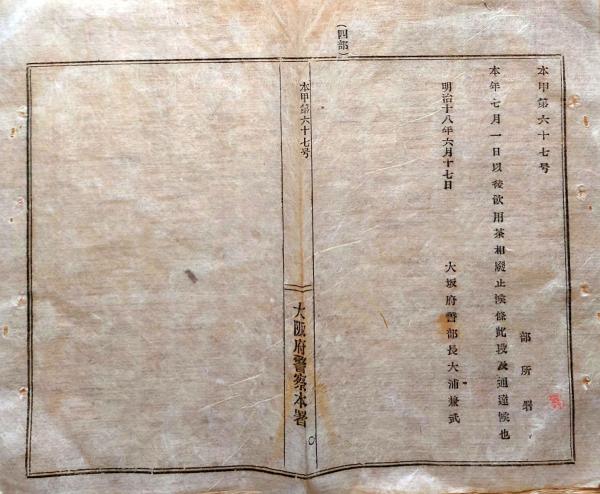 本甲第六十七号
部所署
本年七月一日以後飲用茶相廃止候條此段及通達候也
明治十八年六月十七日
大坂府警部長大浦兼武
(四部)
本甲第六十七号
大阪府警察本署